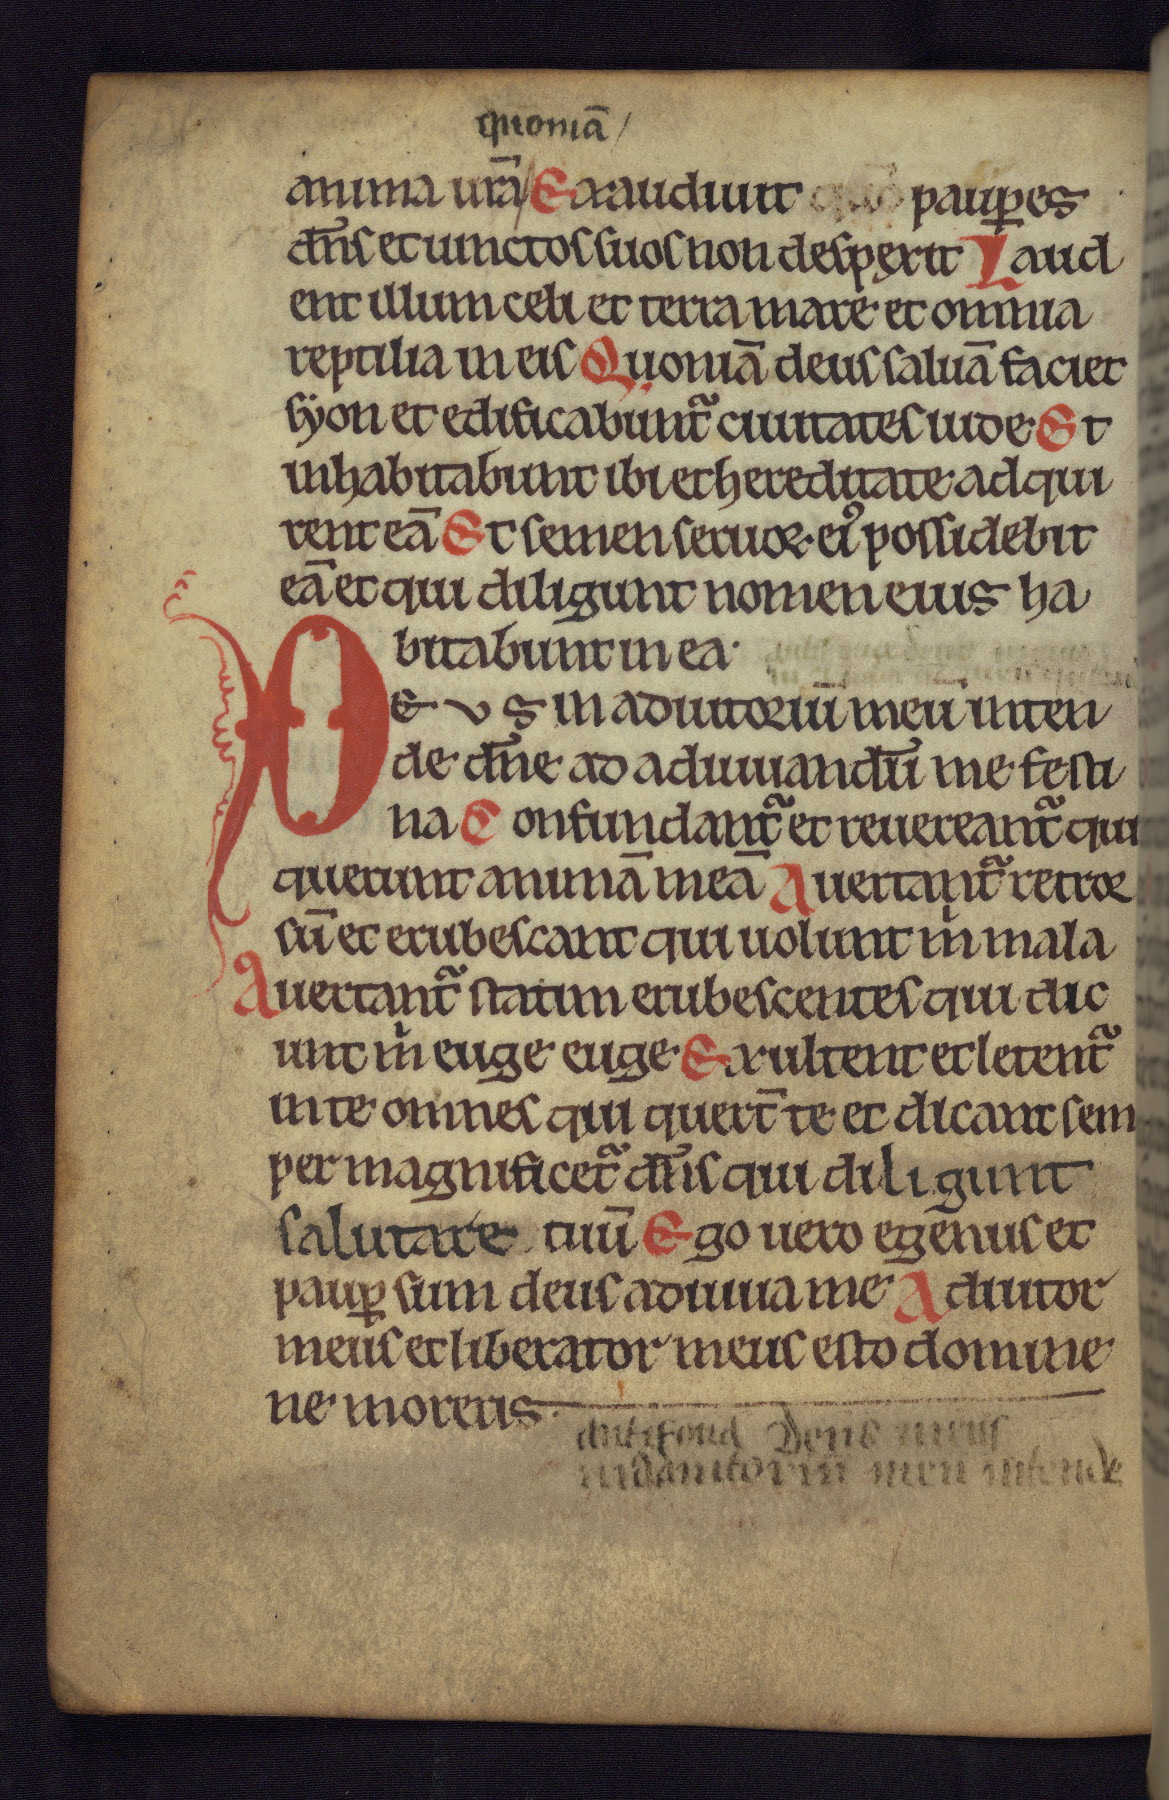 quoniā /
anima ur̄a/ Exaudiuit pauꝑes
dn̄s et uinctos suos non despexit Laud
ent illum celi et terra mare et omnia
reptilia in eis Quoniā deus saluā faciet
syon et edificabunt᷑ ciuitates iude Et
inhabitabunt ibi et hereditate adqui
rent eā Et semen seruoꝝ eiꝰ possidebit
eā et qui diligunt nomen eius ha
bitabunt in ea·
DEVS in adiutoriū meū inten
de dn̄e ad adiuuandū me festi
na Confundant᷑ et reuereant᷑ qui
querunt animā meā Auertant᷑ retror
sū et erubescant qui uolunt m̍ mala
Auertant᷑ statim erubescentes qui dic
unt m̍ euge euge Exultent et letent᷑
in te omnes qui quert̄ te et dicant sem
per magnificet᷑ dn̄s qui diligunt
salutare tuū Ego uero egenus et
pauꝑ sum deus adiuua me Adiutor
meus et liberator meus esto domine
ne moreris·
antifona Deus meus
in adiutoriū meū intende